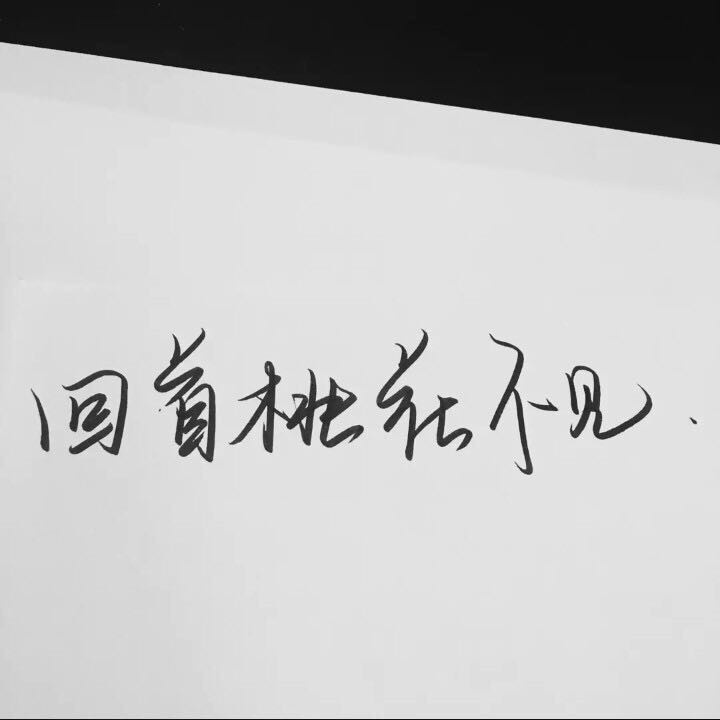 回首桃花不见.